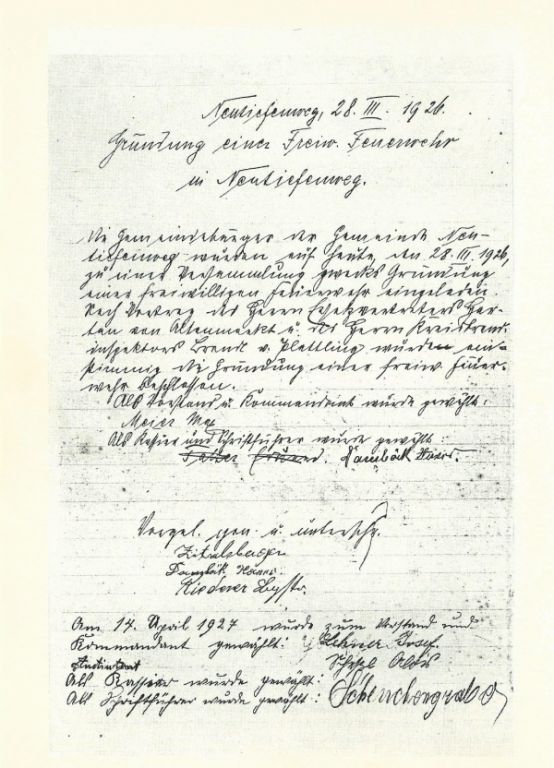 Neutiefenweg, 28. III. 1926.
Gründung einer Freiw. Feuerwehr
in Neutiefenweg.
Die Gemeindebürger der Gemeinde Neu-
tiefenweg wurden auf heute, den 28. III. 1926,
zu einer Versammlung zwecks Gründung
einer freiwilligen Feuerwehr eingeladen.
Nach Vortrag des Herrn Bezirksvertreters Har-
von Altenmarkt u. des Herrn Kreisbrand-
inspektors Brandl v. Plattling wurde ein-
stimmig die Gründung einer freiw. Feuer-
wehr beschlossen.
Als Vorstand u. Kommandant wurde gewählt:
Meier Max
Als Kassier und Schriftführer wurde gewählt:
Dambäck Hans.
Vorgel. gen. u. unterschr.
Dambäck Hans.
Riederer
Am 14. April 1927 wurde zum Vorstand und
Kommandant gewählt: Lehner Josef.
Adjutant
Als Kassier wurde gewählt:
Als Schriftführer wurde gewählt: